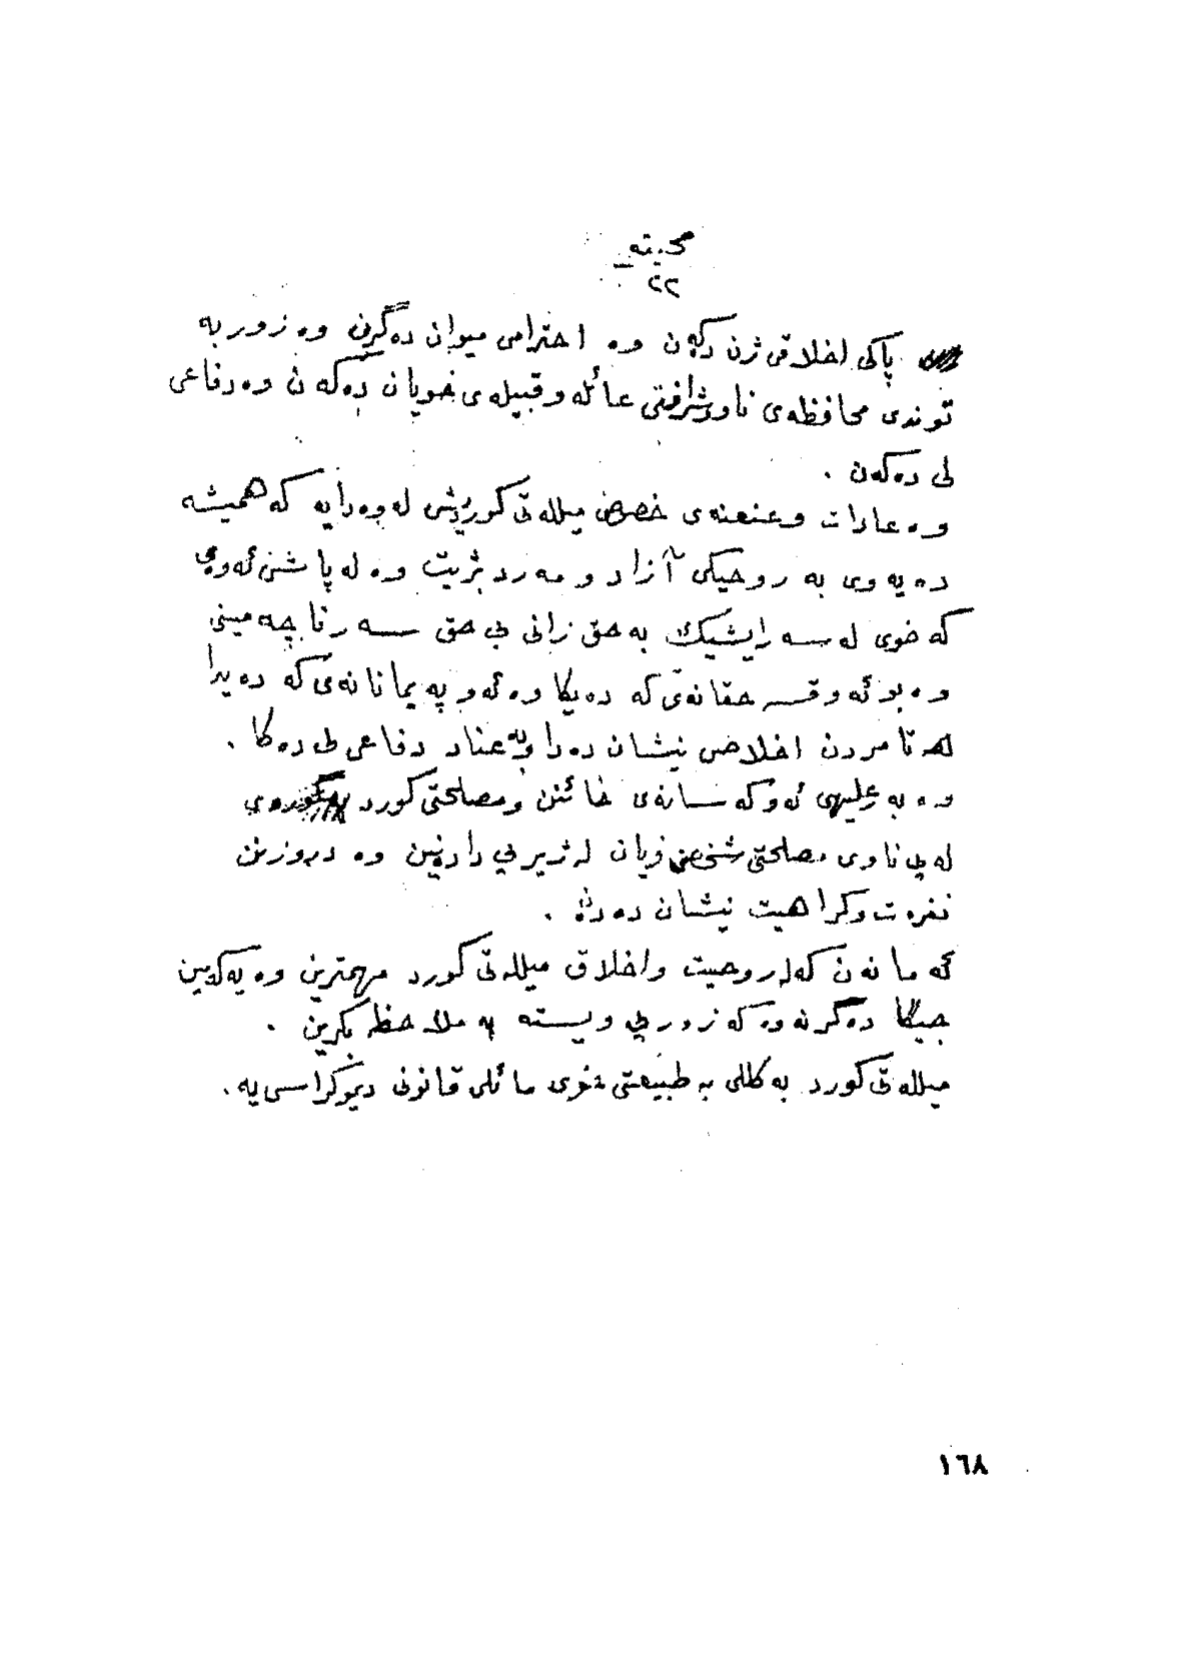 ٢٢
پاکی اخلاقی ژن دەکەن وە احترامی میوان دەگرن وە زور بە
توندی محافظەی ناو وشرافتی عائلە و قبیلەی خویان دەکەن وە دفاعی
لی دەکەن .
وە عادات وعنعنەی خصوصی میللەتی کوردیش لەوەدایە کە همیشە
دەیەوی بە روحیکی آزاد و مەرد بژیت وە لە پاشنئەوەی
کە خوی لە سەرایشیک بە حق زانی بی حق سەر ناچەمینی
وە بو ئەو قسە حقانەی کە دەیکا وە ئەو پەیمانانەی کە دەیدا
هەتا مردن اخلاص نیشان دەدا وبە عناد دفاعی لی دەکا .
وە بە علیهی ئەو کەسانەی خائنن ومصلحتی کورد
لە پی ناوی مصلحتی شخصی ذیان لە ژیر پی دادەنین وە دروزنن
نفرەت وکراهیت نیشان دەدە .
ئەمانەن کە لە روحیت واخلاق میللەتی کورد مهمترین وە یەکەمین
جیگا دەگرنەوە کە زور پی ویستە بە ملاحظە بکرین .
میللەتی کورد بە کللی بە طبیعتی خوی مائلی قانونی دیموکراسی یە .
١٦٨